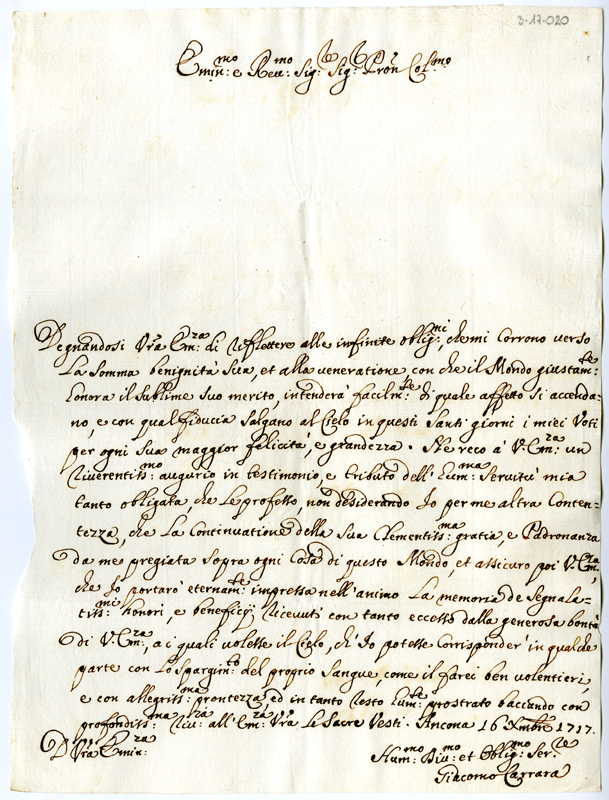 3-17-020
Emin:mo e Rev:mo Sig:re Sig:re Pron Col:mo
Degnandosi Vra Em:za di riflettere alle infinite oblig:ni, che mi corrono verso
la somma benignità sua, et alla veneratione, con che il Mondo giustam:te
honora il sublime suo merito, intenderà facilm:te di quale affetto si accenda-
no, e con qual fiducia salgano al Cielo in questi santi giorni i miei Voti
per ogni sua maggior felicità, e grandezza. Ne reco à V. Em:za un
riverentiss:mo augurio in testimonio, e tributo dell'hum:ma servitù mia
tanto obligata, che le professo, non desiderando Io per me altra Conten-
tezza, che la Continuatione della sua Clementiss:ma gratia, e Padronanza
da me pregiata sopra ogni Cosa di questo Mondo, et assicuro poi V. Em:za,
che Io portarò eternam:te impressa nell'animo la memoria de segnala-
tiss:mi honori, e beneficij ricevuti con tanto eccesso dalla generosa bontà
di V. Em:za, a i quali volesse il Cielo, ch'Io potesse corrisponder' in qualche
parte con lo spargim:to del proprio sangue, come il farei ben volentieri,
e con allegriss:ma prontezza, ed in tanto resto hum:te prostrato bacciando con
profondiss:ma riv:za all'Em:za Vra le sacre Vesti. Ancona 16 Xmbre 1717.
D Vra Emin:za
Hum:mo Div:mo et Oblig:mo Ser:re
Giacomo Carrara